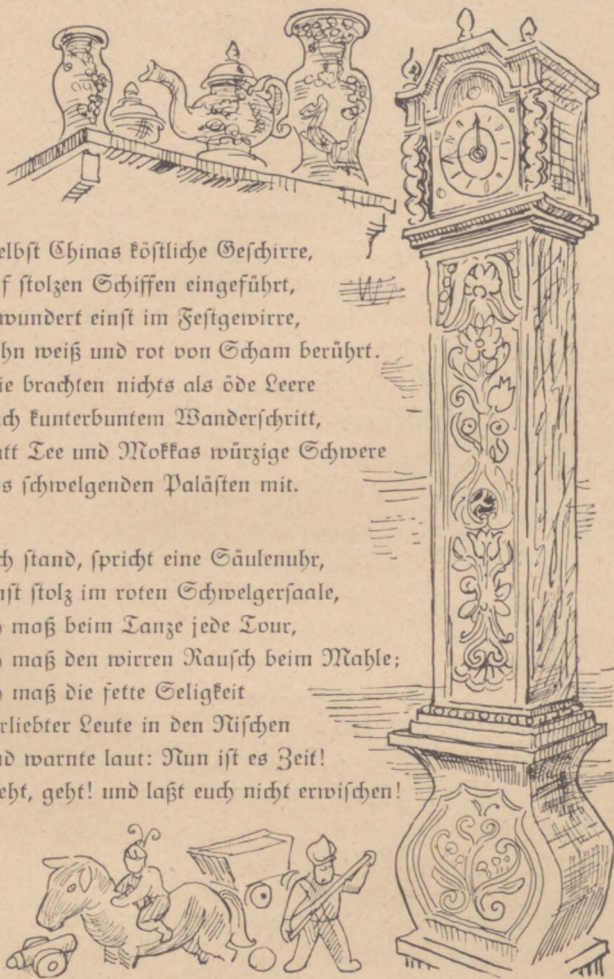 elbst Chinas köstliche Geschirre,
f stolzen Schiffen eingeführt,
wundert einst im Festgewirre,
hn weiß und rot von Scham berührt.
ie brachten nichts als öde Leere
ch kunterbuntem Wanderschritt,
tt Tee und Mokkas würzige Schwere
s schwelgenden Palästen mit.
ch stand, spricht eine Säulenuhr,
nst stolz im roten Schwelgersaale,
maß beim Tanze jede Tour,
maß den wirren Rausch beim Mahle;
maß die fette Seligkeit
rliebter Leute in den Nischen
nd warnte laut: Nun ist es Zeit!
eht, geht! und laßt euch nicht erwischen!